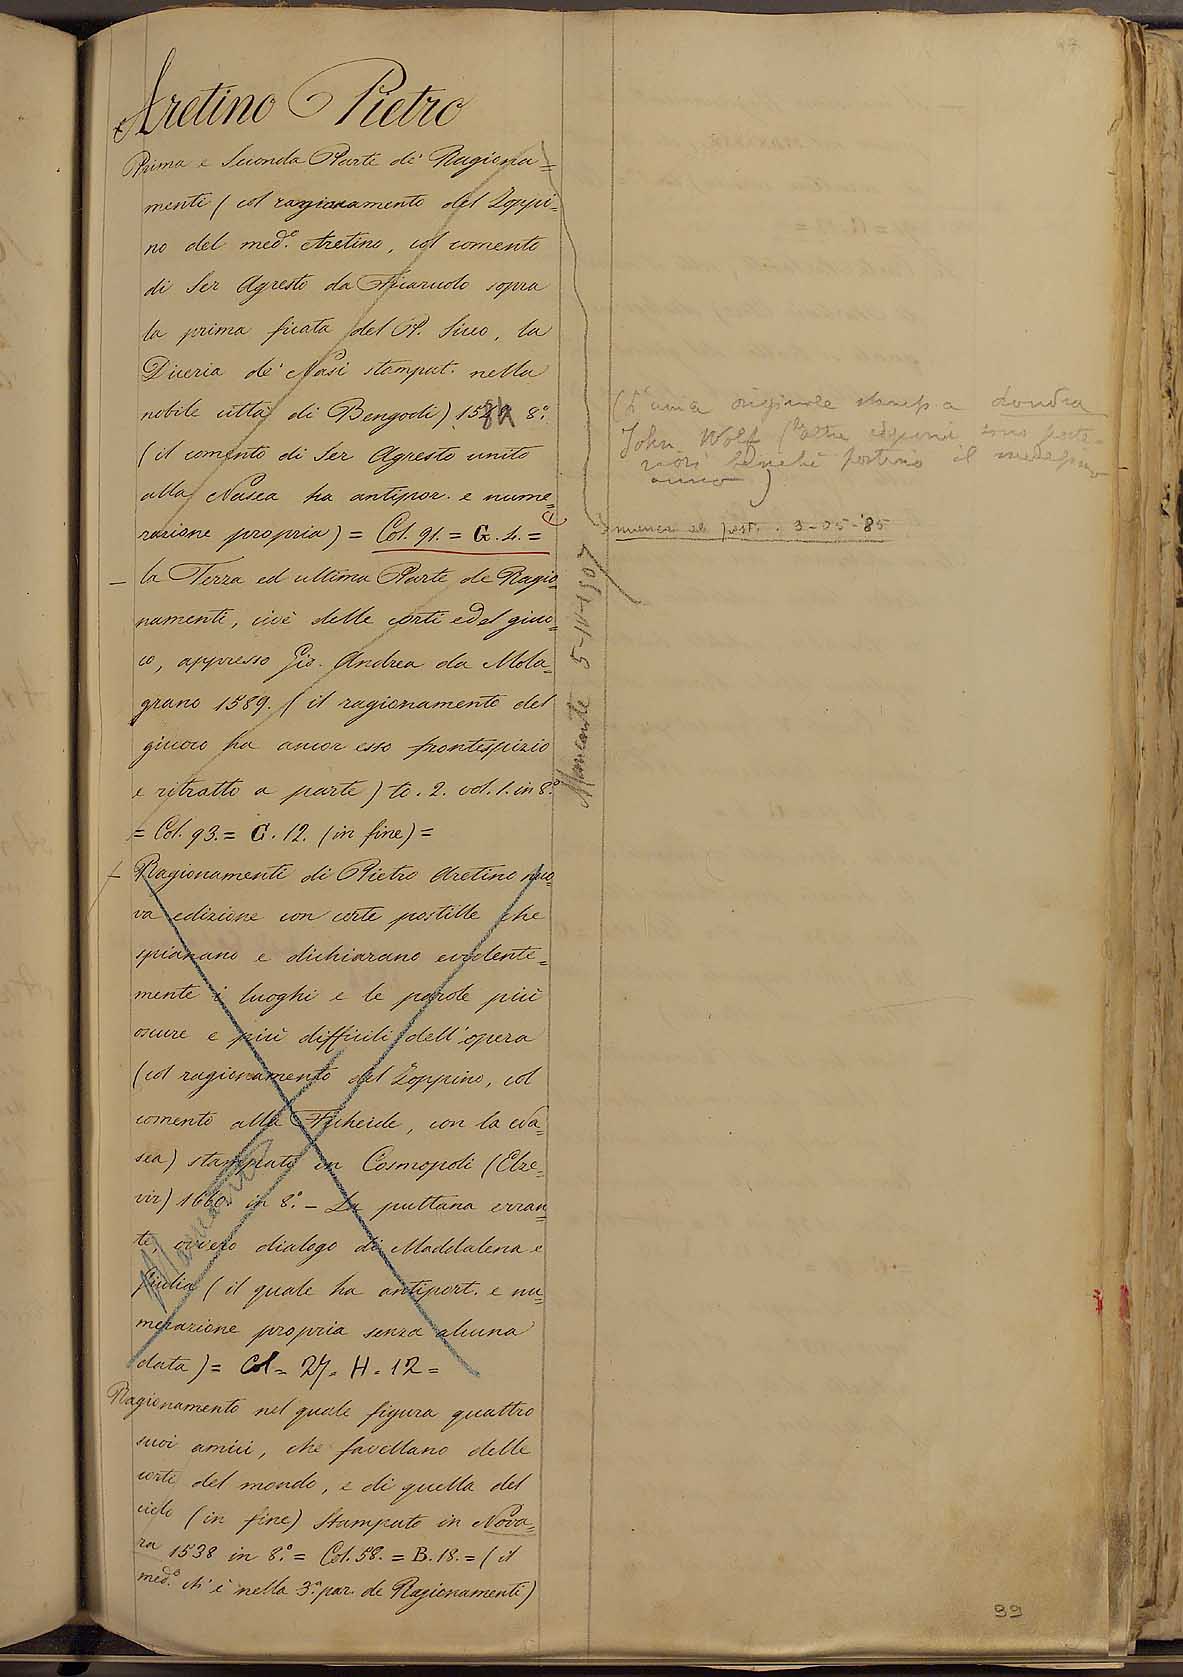 Aretino Pietro
Prima e Seconda Parte de' Ragiona=
menti (col ragionamento del Zoppi=
no del med.º Aretino, col comento
di Ser Agresto da Ficaruolo sopra
la prima ficata del P. Siceo, la
Diceria de' Nasi stampat. nella
nobile città di Bengodi) 1584 8.º
(il comento di Ser Agresto unito
alla Nasea ha antipor. e nume=
razione propria) = Col. 91. = G. 4. =
— la Terza ed ultima Parte de Ragio=
namenti, cioè delle corti e del giuo=
co, appresso Gio. Andrea da Mela=
grano 1589. (il ragionamento del
giuoco ha ancor esso frontespizio
e ritratto a parte) to. 2. vol. 1. in 8.º
= Col. 93. = G. 12. (in fine) =
— Ragionamenti di Pietro Aretino nuo=
va edizione con certe postille che
spianano e dichiarano evidente=
mente i luoghi e le parole più
oscure e più difficili dell'opera
(col ragionamento del Zoppino, col
comento alla Ficheide, con la Na=
sea) stampati in Cosmopoli (Elze=
vir) 1660. in 8.º — La puttana erran=
te, ovvero dialogo di Maddalena e
Giulia (il quale ha antiport. e nu=
merazione propria senza alcuna
data) = Col = 27. H. 12 =
Ragionamento nel quale figura quattro
suoi amici, che favellano delle
corti del mondo, e di quella del
cielo (in fine) Stampato in Nova=
ra 1538 in 8.º = Col. 58. = B. 18. = (il
med.º ch' è nella 3.ª par. de Ragionamenti)
Mancante 5-IV-1907
originale stamp. a Londra
John Wolf (altre edizioni sono poste-
riori benchè portino il medesimo
anno)
manca al post. . 3-05-'85
99